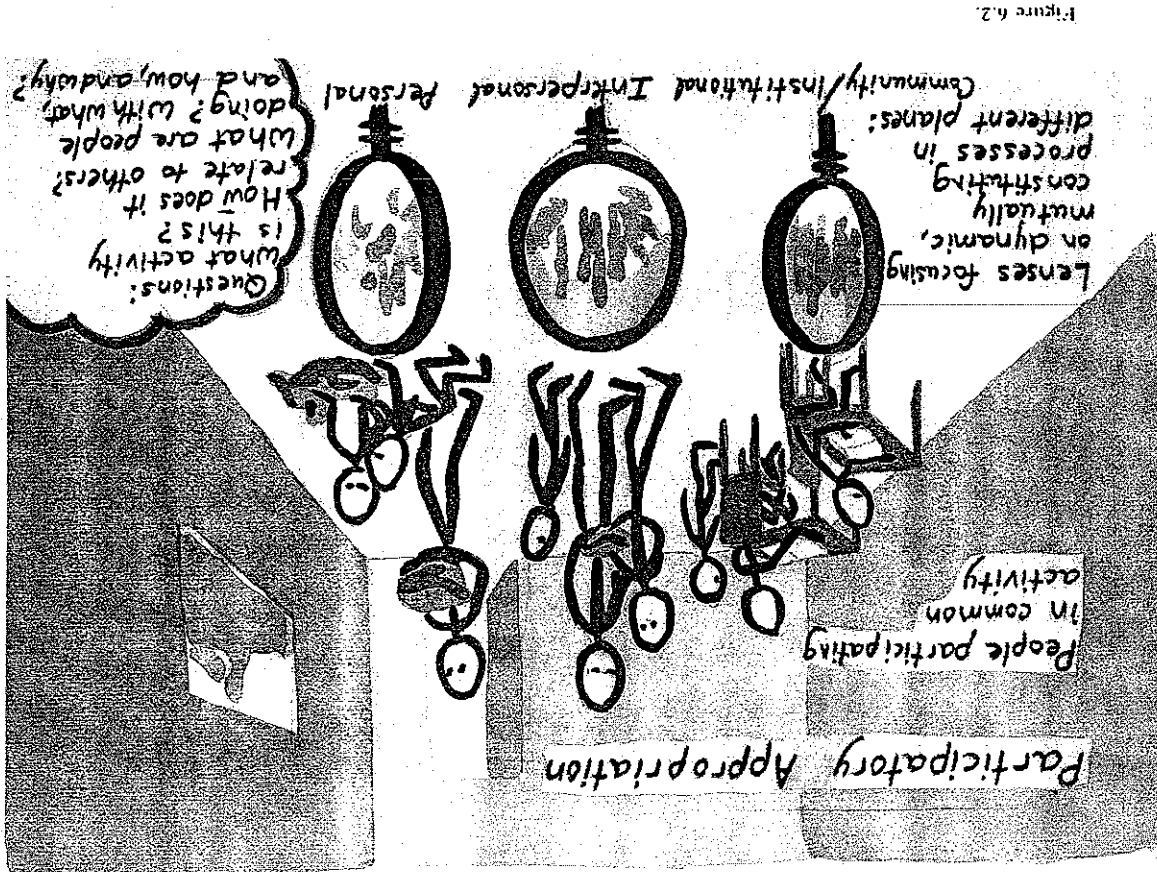 Participatory Appropriation
People participating
in common
activity
Lenses focusing
on dynamic,
mutually
constituting
processes in
different planes:
Community/Institutional Interpersonal Personal
Questions:
What activity
is this?
How does it
relate to others?
What are people
doing? With what,
and how, and why?
Figure 6.2.